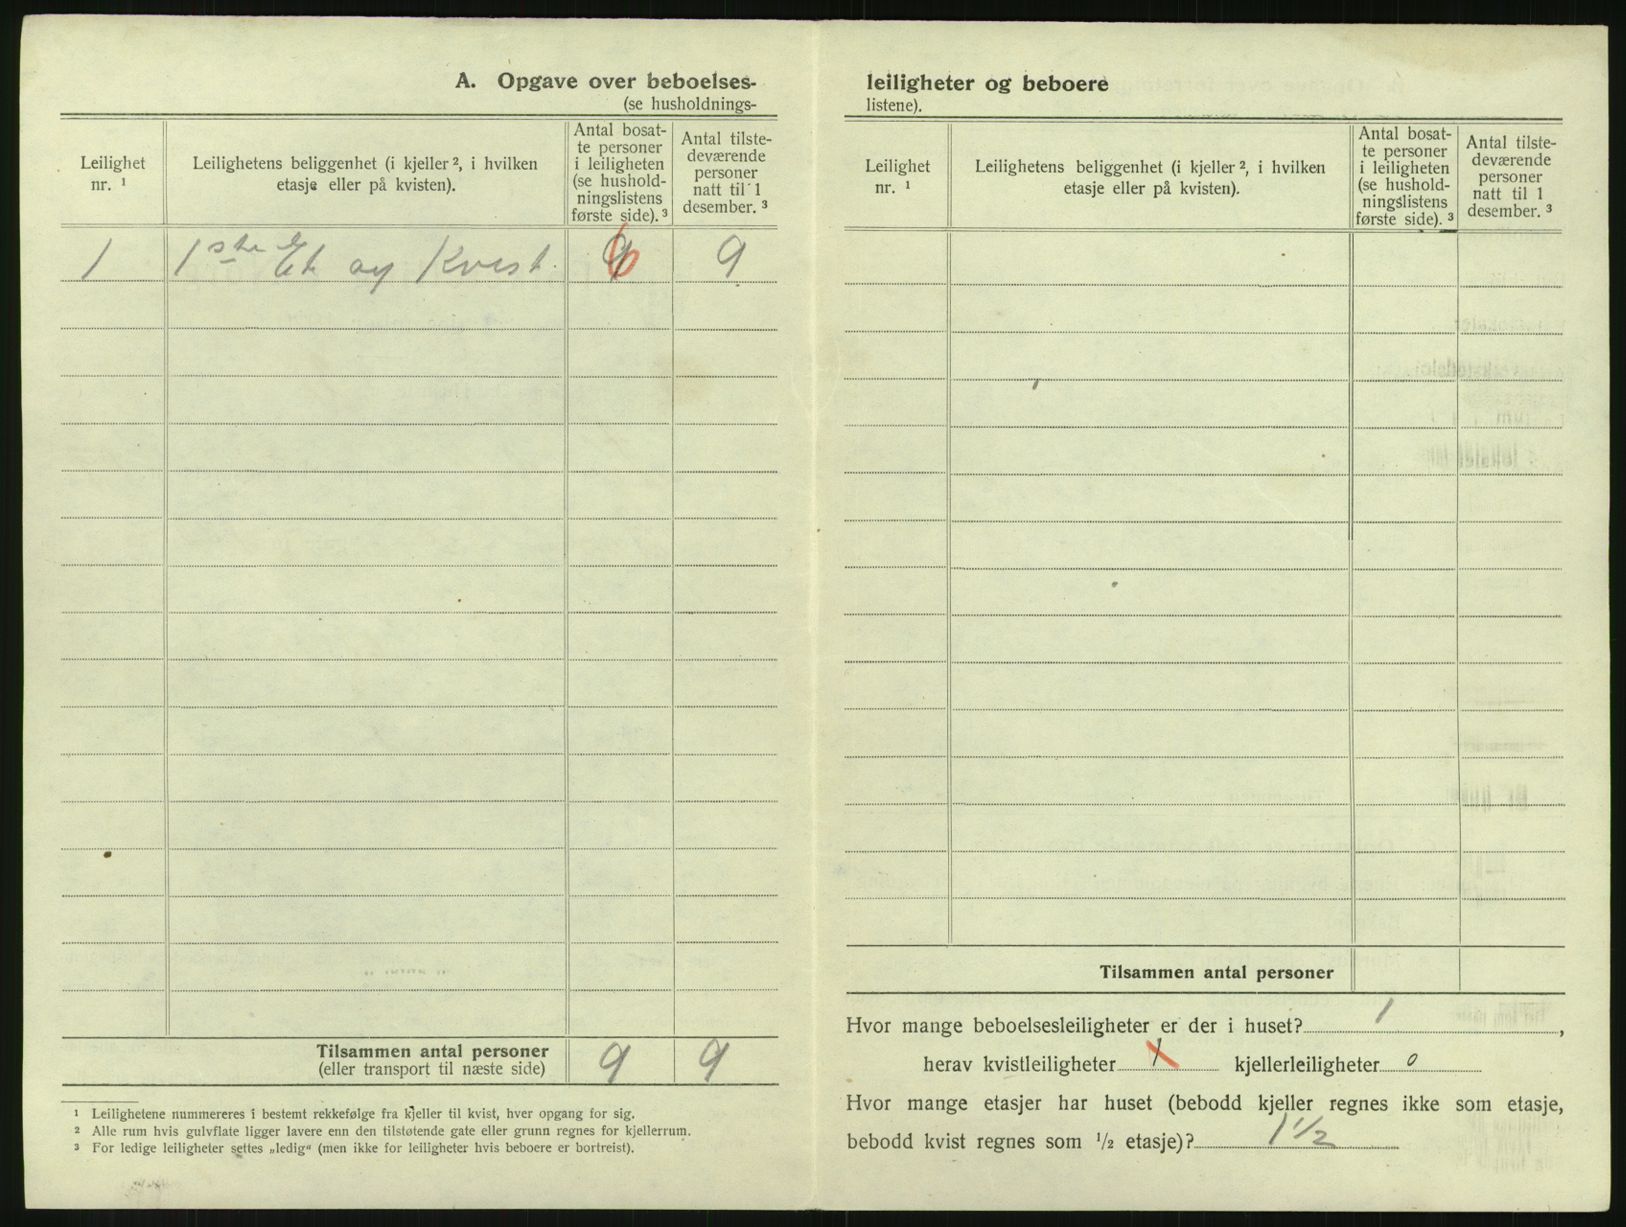 A. Opgave over beboelses-
(se husholdnings-
Leilighet
nr. ¹
Leilighetens beliggenhet (i kjeller ², i hvilken
etasje eller på kvisten).
Antal bosat-
te personer
i leiligheten
(se hushold-
ningslistens
første side). ³
Antal tilste-
deværende
personer
natt til 1
desember. ³
1 1ste Et og Kvist. 6 9
Tilsammen antal personer 9 9
(eller transport til næste side)
¹ Leilighetene nummereres i bestemt rekkefølge fra kjeller til kvist, hver opgang for sig.
² Alle rum hvis gulvflate ligger lavere enn den tilstøtende gate eller grunn regnes for kjellerrum.
³ For ledige leiligheter settes „ledig" (men ikke for leiligheter hvis beboere er bortreist).
leiligheter og beboere
listene).
Leilighet
nr. ¹
Leilighetens beliggenhet (i kjeller ², i hvilken
etasje eller på kvisten).
Antal bosat-
te personer
i leiligheten
(se hushold-
ningslistens
første side). ³
Antal tilste-
deværende
personer
natt til 1
desember. ³
Tilsammen antal personer
Hvor mange beboelsesleiligheter er der i huset? 1,
herav kvistleiligheter 1 kjellerleiligheter 0
Hvor mange etasjer har huset (bebodd kjeller regnes ikke som etasje,
bebodd kvist regnes som ½ etasje)? 1½